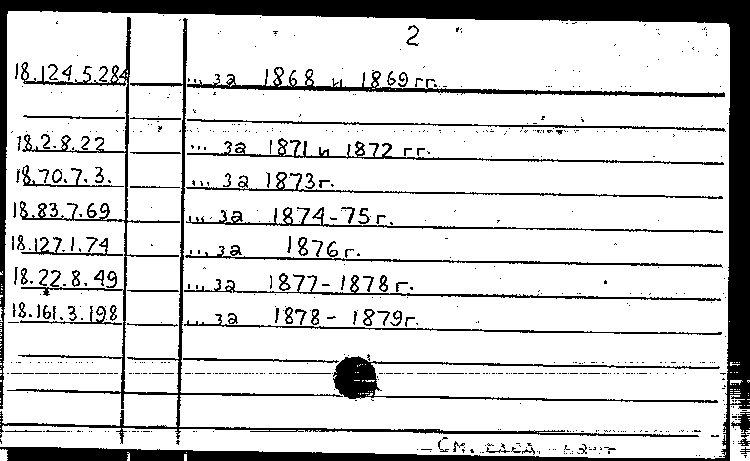 2
18.124.5.284 ... за 1868 и 1869 гг.
18.2.8.22 ... за 1871 и 1872 гг.
18.70.7.3. ... за 1873 г.
18.83.7.69 ... за 1874-75 г.
18.127.1.74 ... за 1876 г.
18.22.8.49 ... за 1877-1878 г.
18.161.3.198 ... за 1878-1879 г.
См. след.